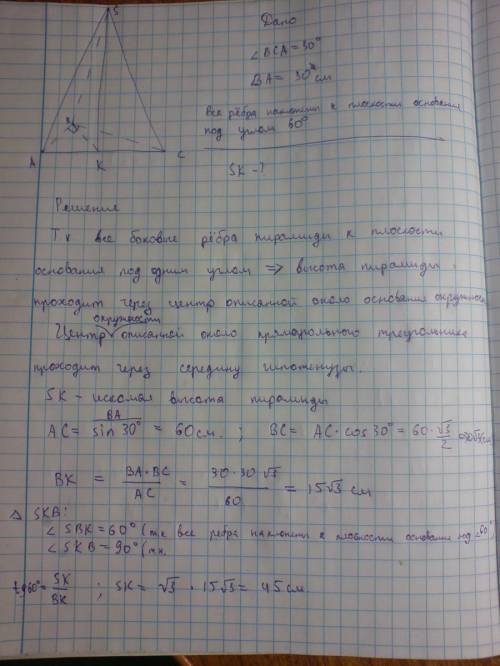 S
Дано
∠BCA = 30°
BA = 30 см
все рёбра наклонены к плоскости основания
под углом 60°
A K C
SK - ?
Решение
Т к все боковые рёбра пирамиды к плоскости
основания под одним углом => высота пирамиды
проходит через центр описанной около основания окружности
окружности
Центр описанной около прямоугольного треугольника
проходит через середину гипотенузы.
SK - искомая высота пирамиды
AC = BA / sin 30° = 60 см. ; BC = AC · cos 30° = 60 · √3 / 2 = 30√3 см
BK = BA · BC / AC = 30 · 30 √3 / 60 = 15√3 см
Δ SKB:
∠ SBK = 60° (т к все ребра наклонены к плоскости основания под ∠60°)
∠ SKB = 90° (т.к.
tg 60° = SK / BK ; SK = √3 · 15√3 = 45 см